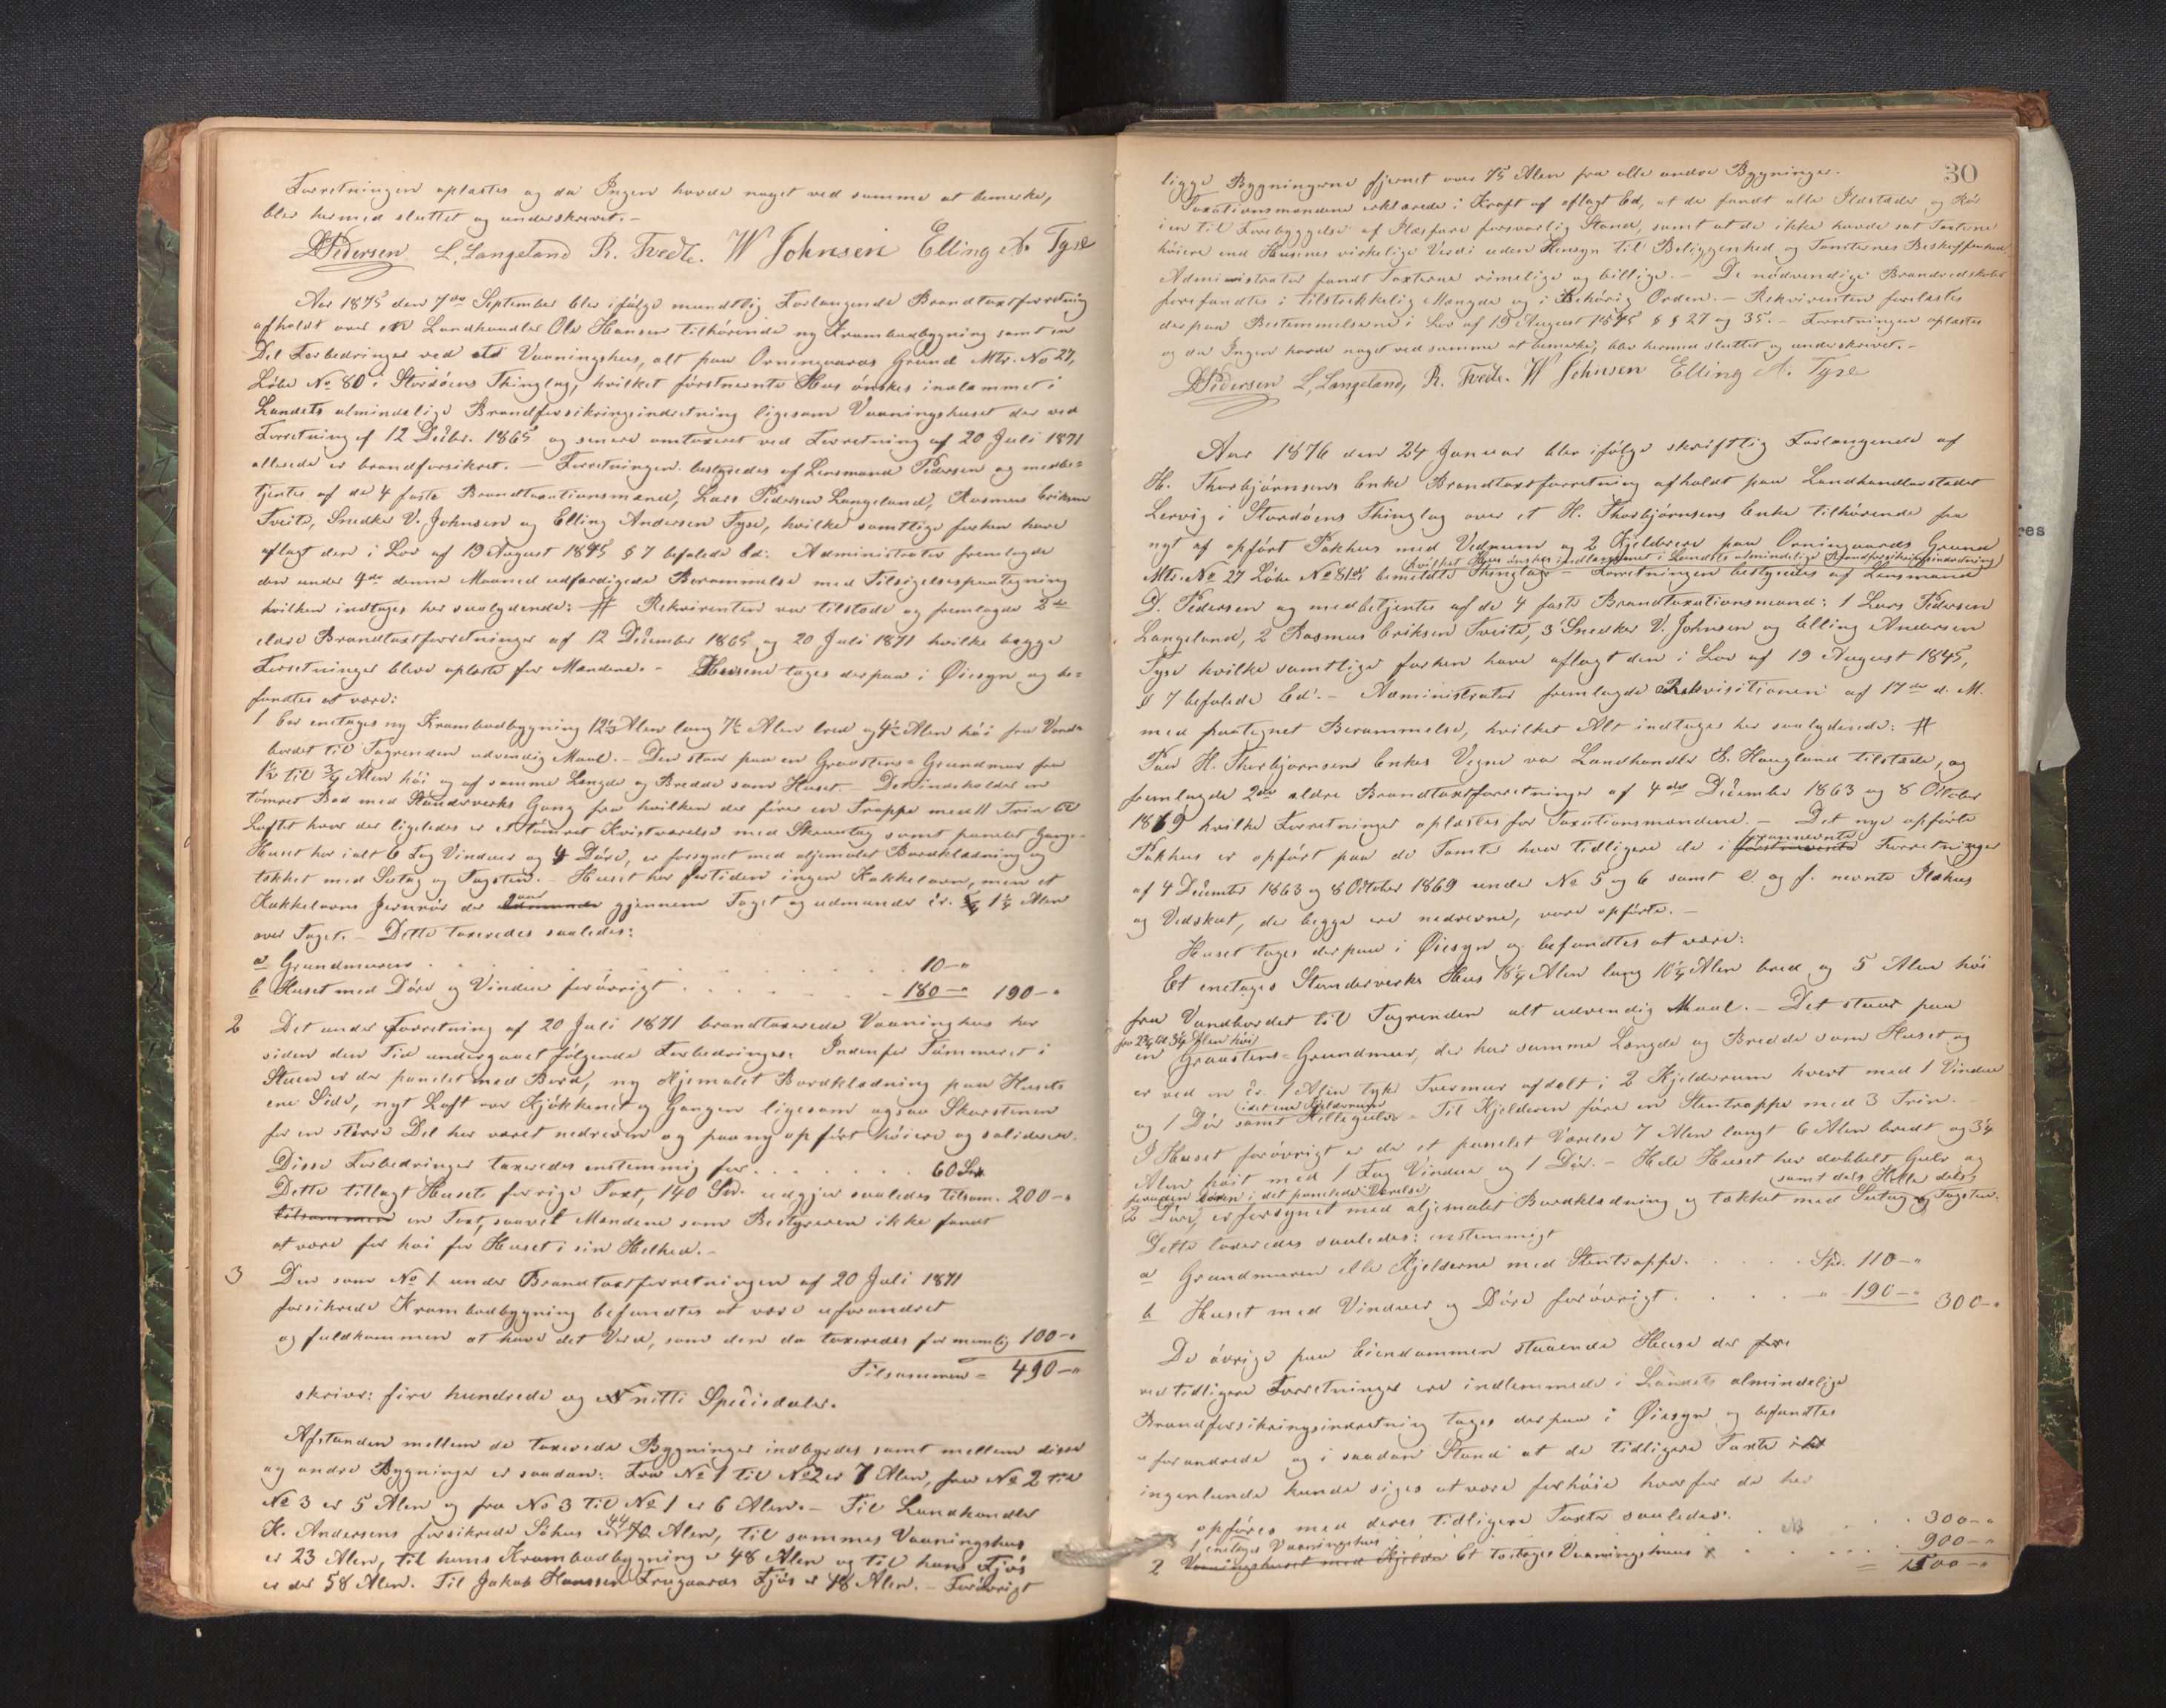 Forretningen oplæstes og da Ingen havde noget ved samme at bemerke,
blev hermed sluttet og underskrevet. -
D Pedersen L. Langeland R. Tvedte. W Johnsen Elling A. Tyse
Aar 1875 den 7de September blev ifölge mundtlig Forlangende Brandtaxtforretning
afholdt over en Landhandler Ole Hansen tilhörende ny Krambodbygning samt en
Del Forbedringer ved et Vaaningshus, alt paa Orningaards Grund Mtr. No 27,
Löbe No 80 i Stordöens Thinglag, hvilket förstnevnte Hus önskes indlemmet i
Landets almindelige Brandforsikringsindretning ligesom Vaaningshuset der ved
Forretning af 12 Decbr. 1865 og senere omtaxeret ved Forretning af 20 Juli 1871
allerede er brandforsikret. - Forretningen bestyredes af Lensmand Pedersen og medbe=
tjentes af de 4 faste Brandtaxationsmænd, Lars Pedersen Langeland, Rasmus Eriksen
Tveite, Snedker V. Johnsen og Elling Andersen Tyse, hvilke samtlige forhen have
aflagt den i Lov af 19 August 1845 § 7 befalede Ed. Administrator fremlagde
den under 4de denne Maaned udfærdigede Berammelse med Tilsigelsespaategning
hvilken indtages her saalydende: # Rekvirenten var tilstede og fremlagde 2de
eldre Brandtaxtforretninger af 12 December 1865 og 20 Juli 1871 hvilke begge
Forretninger bleve oplæste for Mændene. - Husene toges derpaa i Öiesyn og be=
fandtes at være:
1 Een enetages ny Krambodbygning 12½ Alen lang 7½ Alen bred og 4½ Alen höi fra Vand=
bordet til Tagrenden udvendig Maal. - Den staar paa en Graastens=Grundmur fra
1½ til ¾ Alen höi og af samme Længde og Bredde som Huset. - Det indeholder en
tömret Bod med Standerverks Gang fra hvilken der förer en Trappe med 11 Trin til
Loftet hvor der ligeledes er et tömret Kvistværelse med Skraatag samt panelet Gang. -
Huset har i alt 6 Fag Vinduer og 4 Döre, er forsynet med oljemalet Bordklædning og
tækket med Sutag og Tagsten. - Huset har for tiden ingen Kakkelovn, men et
Kakkelovns Jernrör der gaar gjennem Taget og udmunder cr. 1¼ Alen
over Taget. - Dette taxeredes saaledes:
a Grundmuren . . . . . 10 - "
b Huset med Döre og Vinduer forövrigt . . . . 180 - " 190 - "
2 Det under Forretning af 20 Juli 1871 brandtaxerede Vaaninghus har
siden den Tid undergaaet fölgende Forbedringer: Indenfor Tömmeret i
Stuen er der panelet med Bord, ny oljemalet Bordklædning paa Husets
ene Side, nyt Loft over Kjökkenet og Gangen ligesom ogsaa Skorstenen
for en större Del har været nedreven og paany opfört höiere og solidere.
Disse Forbedringer taxeredes enstemmig for . . . . . 60 Spd.
Dette tillagt Husets forrige Taxt, 140 Spd. udgjør saaledes tilsam. 200 - "
tilsammen en Taxt, saavel Mændene som Bestyreren ikke fandt
at være for höi for Huset i sin Helhed. -
3 Den som No 1 under Brandtaxtforretningen af 20 Juli 1871
forsikrede Krambodbygning befandtes at være uforandret
og fuldkommen at have det Værd, som den da taxeredes for nemlig 100 - "
Tilsammen = 490 - "
skriver: fire hundrede og nitti Speciedaler.
Afstanden mellem de taxerede Bygninger indbyrdes samt mellem disse
og andre Bygninger er saadan: Fra No 1 til No 2 er 7 Alen, fra No 2 til
No 3 er 5 Alen og fra No 3 til No 1 er 6 Alen. - Til Landhandler
K. Andersens forsikrede Söhus er 44 Alen, til sammes Vaaningshus
er 23 Alen, til hans Krambodbygning er 48 Alen og til hans Fjös
er der 58 Alen. Til Jakob Hanssen Frugaards Fjös er 48 Alen. - Forövrigt
30
ligge Bygningerne fjernet over 75 Alen fra alle andre Bygninger.
Taxationsmændene erklærede i Kraft af aflagt Ed, at de fandt alle Ildsteder og Rör
i en til Forebyggelse af Ildsfare forsvarlig Stand, samt at de ikke havde sat Taxterne
höiere end Husenes virkelige Værdi uden Hensyn til Beliggenhed og Tomternes Beskaffenhed.
Administrator fandt Taxterne rimelige og billige. - De nödvendige Brandredskaber
forefandtes i tilstrekkelig Mængde og i behörig Orden. - Rekvirenten forelæstes
derpaa Bestemmelserne i Lov af 19 August 1845 § § 27 og 35. - Forretningen oplæstes
og da Ingen havde noget ved samme at bemerke, blev hermed sluttet og underskrevet. -
D Pedersen L. Langeland, R. Tvedte. W Johnsen Elling A. Tyse
Aar 1876 den 24 Januar blev ifölge skriftlig Forlangende af
H. Thorbjörnsens Enke Brandtaxtforretning afholdt paa Landhandlerstedet
Lervig i Stordöens Thinglag over et H. Thorbjörnsens Enke tilhörende fra
nyt af opfört Pakhus med Vedrum og 2 Kjeldere paa Orningaards Grund
hvilket Hus önskes indlemmet i Landets almindelige Brandforsikringsindretning
Mtr. No 27 Löbe No 81 i bemeldte Thinglag - Forretningen bestyredes af Lensmand
D. Pedersen og medbetjentes af de 4 faste Brandtaxationsmænd: 1 Lars Pedersen
Langeland, 2 Rasmus Eriksen Tveite, 3 Snedker V. Johnsen og Elling Andersen
Tyse hvilke samtlige forhen have aflagt den i Lov af 19 August 1845,
§ 7 befalede Ed. - Administrator fremlagde Rekvisitionen af 17de d. M.
med paategnet Berammelse, hvilket Alt indtages her saalydende: #
Paa H. Thorbjørnsens Enkes Vegne var Landhandler S. Haugland tilstede, og
fremlagde 2de ældre Brandtaxtforretninger af 4de December 1863 og 8 October
1869 hvilke Forretninger oplæstes for Taxationsmændene. - Det nye opförte
Pakhus er opfört paa de Tomter hvor tidligere de i förstnevnte forannevnte Forretninger
af 4 December 1863 og 8 October 1869 under No 5 og 6 samt e. og f. nevnte Ildhus
og Vedskut, der begge ere nedrevne, vare opförte. -
Huset toges derpaa i Öiesyn og befandtes at være:
Et enetages Standerverks Hus 18¼ Alen lang 10¼ Alen bred og 5 Alen höi
fra Vandbordet til Tagrenden alt udvendig Maal. - Det staar paa
fra 2¾ til 3¼ Alen höi
en Graastens=Grundmur, der har samme Længde og Bredde som Huset og
er ved en cr. 1 Alen tyk Tvermur afdelt i 2 Kjelderum hvert med 1 Vindue
i det ene Kjelderum
og 1 Dör samt Hellegulv - Til Kjelderen förer en Stentrappe med 3 Trin. -
I Huset forövrigt er der et panelet Værelse 7 Alen langt 6 Alen bredt og 3¼
Alen höit med 1 Fag Vinduer og 1 Dör. - Hele Huset har dobbelt Gulv og
foruden Dören i det panelede Værelse samt dels Heller dels
2 Döre, er forsynet med oljemalet Bordklædning og tækket med Sutag og Tagsten.
Dette taxeredes saaledes: enstemmigt
a Grundmuren eller Kjelderne med Stentrappe . . . . Spd. 110 - "
b Huset med Vinduer og Döre forövrigt . . . . " 190 - " 300 - "
De övrige paa Eiendommen staaende Huse der
ved tidligere Forretninger ere indlemmede i Landets almindelige
Brandforsikringsindretning toges derpaa i Öiesyn og befandtes
uforandrede og i saadan Stand at de tidligere Taxter
ingenlunde kunde siges at være forhöie hvorfor de her
opföres med deres tidligere Taxter saaledes:
1 enetages Vaaningshus . . . . 300 - "
2 Vaaningshuset med Kjelder Et toetages Vaaningshuus . . . . 900 - "
= 1500 - "